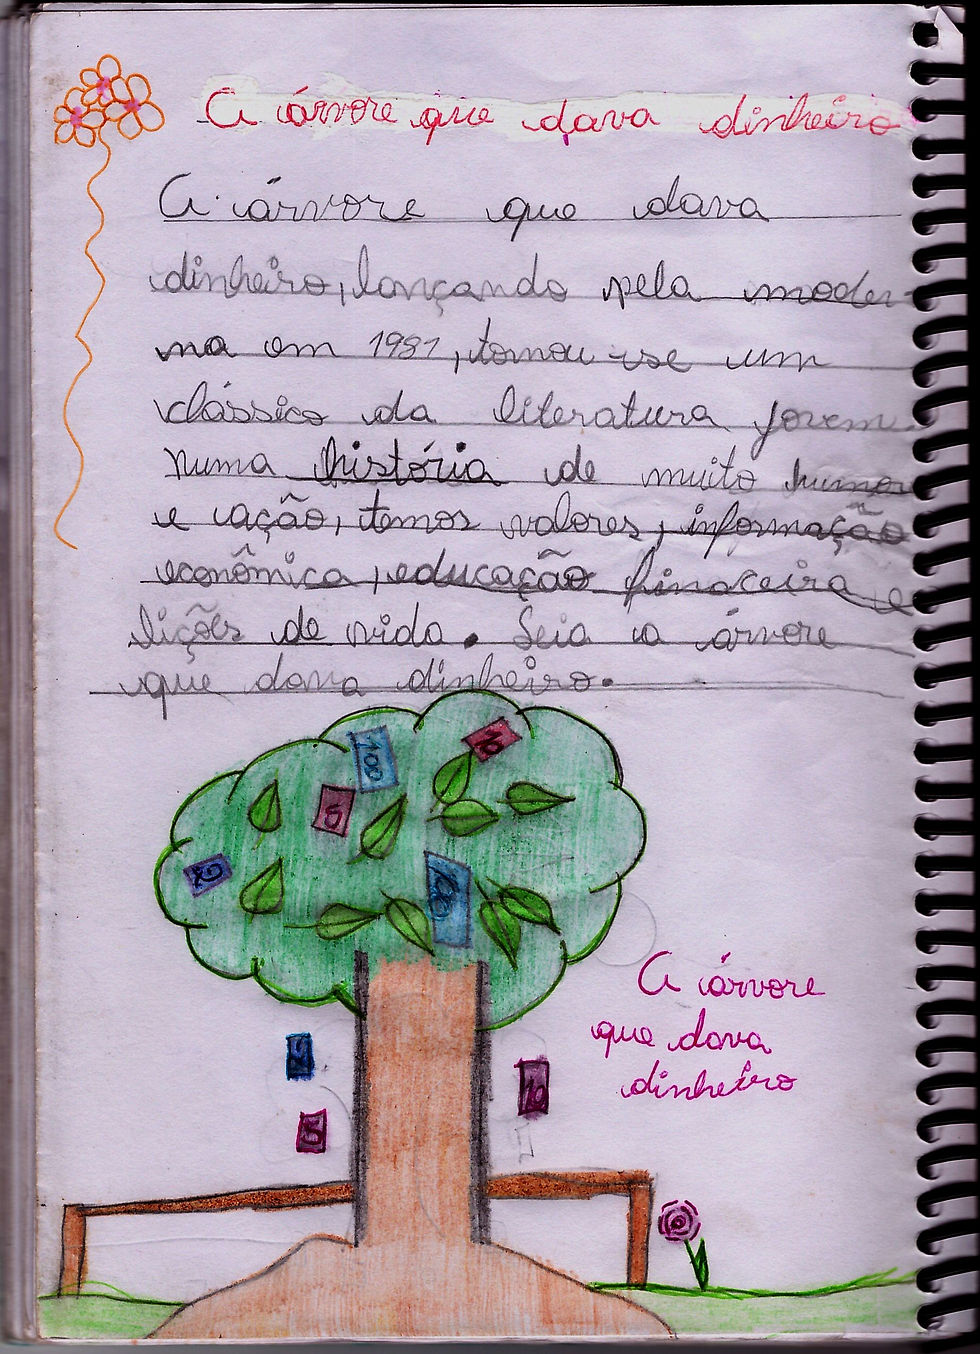 A árvore que dava dinheiro
A árvore que dava
dinheiro, lançando pela moder-
na em 1981, tornou-se um
clássico da literatura jovem
numa história de muito humor
e ação, temos valores, informação
econômica, educação finaceira e
lições de vida. Seia a árvore
que dava dinheiro.
100
10
5
2
100
A árvore
que dava
dinheiro
2
10
5